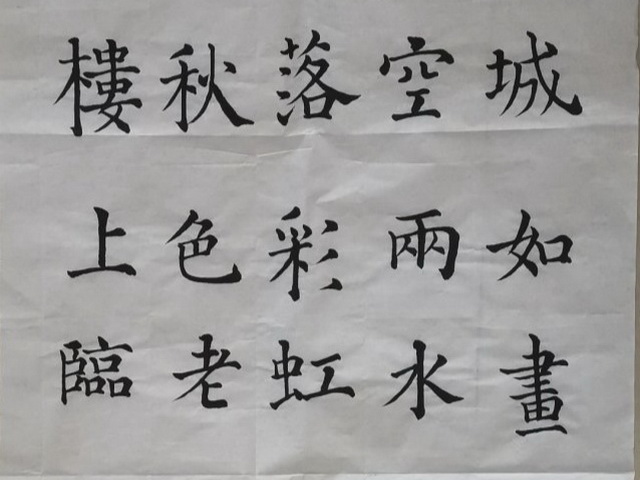 城如畫
空兩水
落彩虹
秋色老
樓上臨